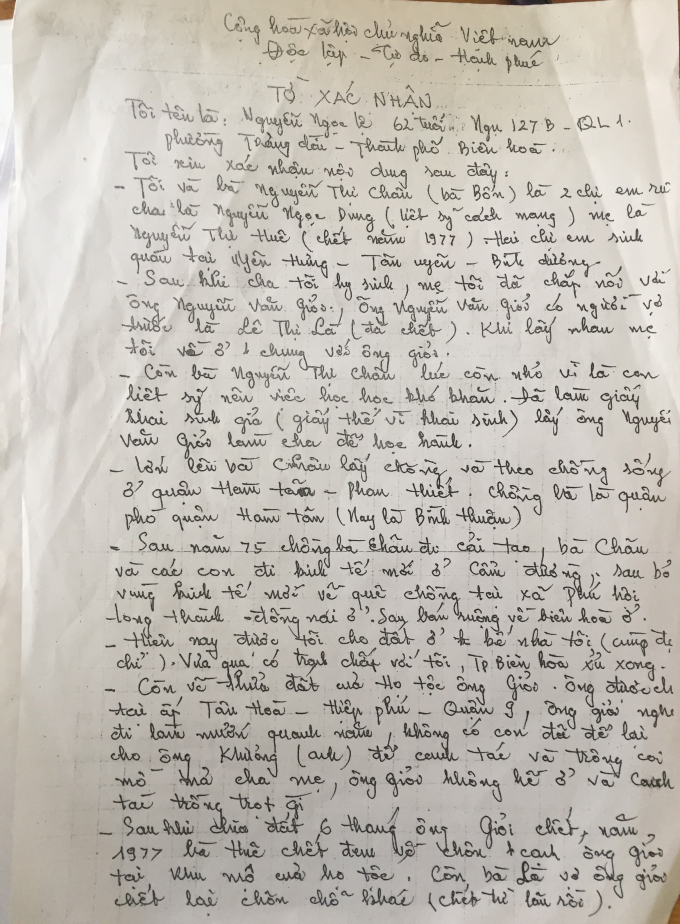 Cộng hoà xã hội chủ nghĩa Việt nam
Độc lập - Tự do - Hạnh phúc
TỜ XÁC NHẬN
Tôi tên là: Nguyễn Ngọc lệ 62 tuổi. Ngụ 127B - QL 1.
phường Trảng dài - Thành phố Biên hoà.
Tôi xin xác nhận nội dung sau đây:
- Tôi và bà Nguyễn Thị Chẩu (bà Bốn) là 2 chị em
cha là Nguyễn Ngọc Dụng (liệt sỹ cách mạng) mẹ là
Nguyễn Thị Huê (chết năm 1977). Hai chị em sinh
quán tại Uyên Hưng - Tân uyên - Bình dương
- Sau khi cha tôi hy sinh, mẹ tôi đã chấp nối với
ông Nguyễn Văn Giỏi, Ông Nguyễn Văn Giỏi có người vợ
trước là Lê Thị Là (đã chết). Khi lấy nhau mẹ
tôi về ở chung với ông giỏi.
- Còn bà Nguyễn Thị Chẩu lúc còn nhỏ vì là con
liệt sỹ nên việc học học khó khăn. Đã làm giấy
khai sinh giả (giấy thế vì khai sinh) lấy ông Nguyễn
Văn Giỏi làm cha để học hành.
- lớn lên bà Chẩu lấy chồng và theo chồng sống
ở quận Hàm tân - Phan thiết. Chồng bà là quận
phó quận Hàm tân (Nay là Bình thuận)
- Sau năm 75 chồng bà Chẩu đi cải tạo, bà Chẩu
và các con đi kinh tế mới ở Cẩm đường, sau bỏ
vùng kinh tế mới về quê chồng tại xã Phú hội
long thành - đồng nai ở. Sau bán ruộng về biên hoà ở.
- Hiện nay được tôi cho đất ở kế nhà tôi (cùng địa
chỉ). Vừa qua có tranh chấp với tôi, Tp Biên hòa xử xong.
- Còn về thửa đất của Họ tộc ông Giỏi. Ông được
tại ấp Tân Hoà - Hiệp phú - Quận 9, ông giỏi
đi làm mướn quanh năm, không có con đã để lại
cho ông Khuởng (anh) để canh tác và trông coi
mồ mả cha mẹ, ông giỏi không hề ở và Canh
tác trồng trọt gì
- Sau khi chia đất 6 tháng ông Giỏi chết, năm
1977 bà Huê chết đem về chôn cạnh ông giỏi
tại khu mộ của họ tộc. Còn bà Là vợ ông giỏi
chết lại chôn chỗ khác (chết từ lâu rồi).